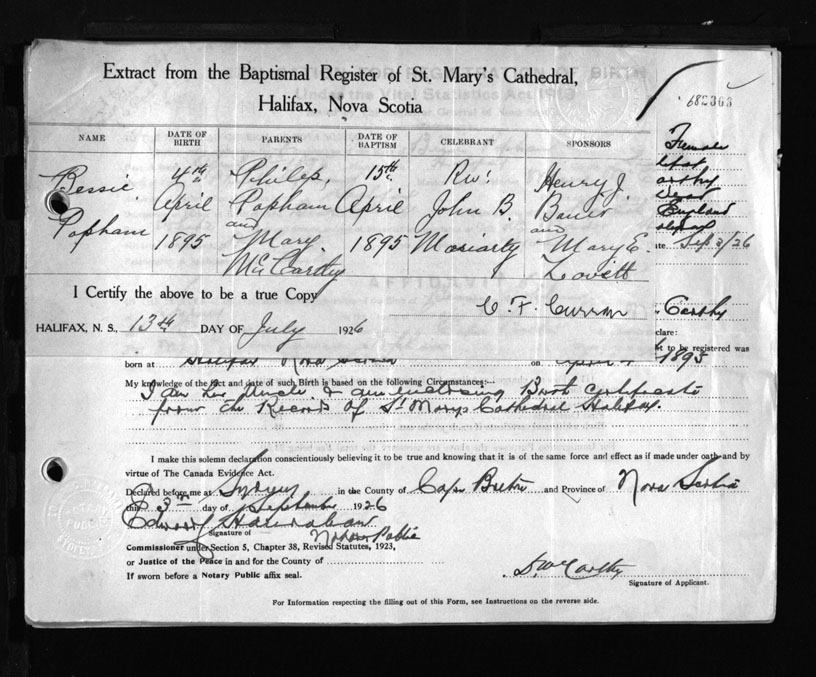 Extract from the Baptismal Register of St. Mary's Cathedral,
Halifax, Nova Scotia
682363
NAME DATE OF BIRTH PARENTS DATE OF BAPTISM CELEBRANT SPONSORS
Female
Bessie 4th Philip, 15th Rev. Henry J.
April Popham April John B.
England
Popham and and
1895 Mary 1895 Moriarty Mary E.
Sep 3/26
McCarthy Lovett
I Certify the above to be a true Copy
C. F. Curran
Carthy
HALIFAX, N. S., 13th DAY OF July 1926
clare:
to be registered was
born at Halifax Nova Scotia on April 4 1895
My knowledge of the fact and date of such Birth is based on the following Circumstances:—
I am her Uncle & am enclosing Birth Certificate
from the Records of St Marys Cathedral Halifax.
I make this solemn declaration conscientiously believing it to be true and knowing that it is of the same force and effect as if made under oath and by
virtue of The Canada Evidence Act.
Declared before me at Sydney in the County of Cape Breton and Province of Nova Scotia
this 3rd day of September 1926
Signature of Notary Public
Commissioner under Section 5, Chapter 38, Revised Statutes, 1923,
or Justice of the Peace in and for the County of
If sworn before a Notary Public affix seal.
D. McCarthy
Signature of Applicant.
For Information respecting the filling out of this Form, see Instructions on the reverse side.